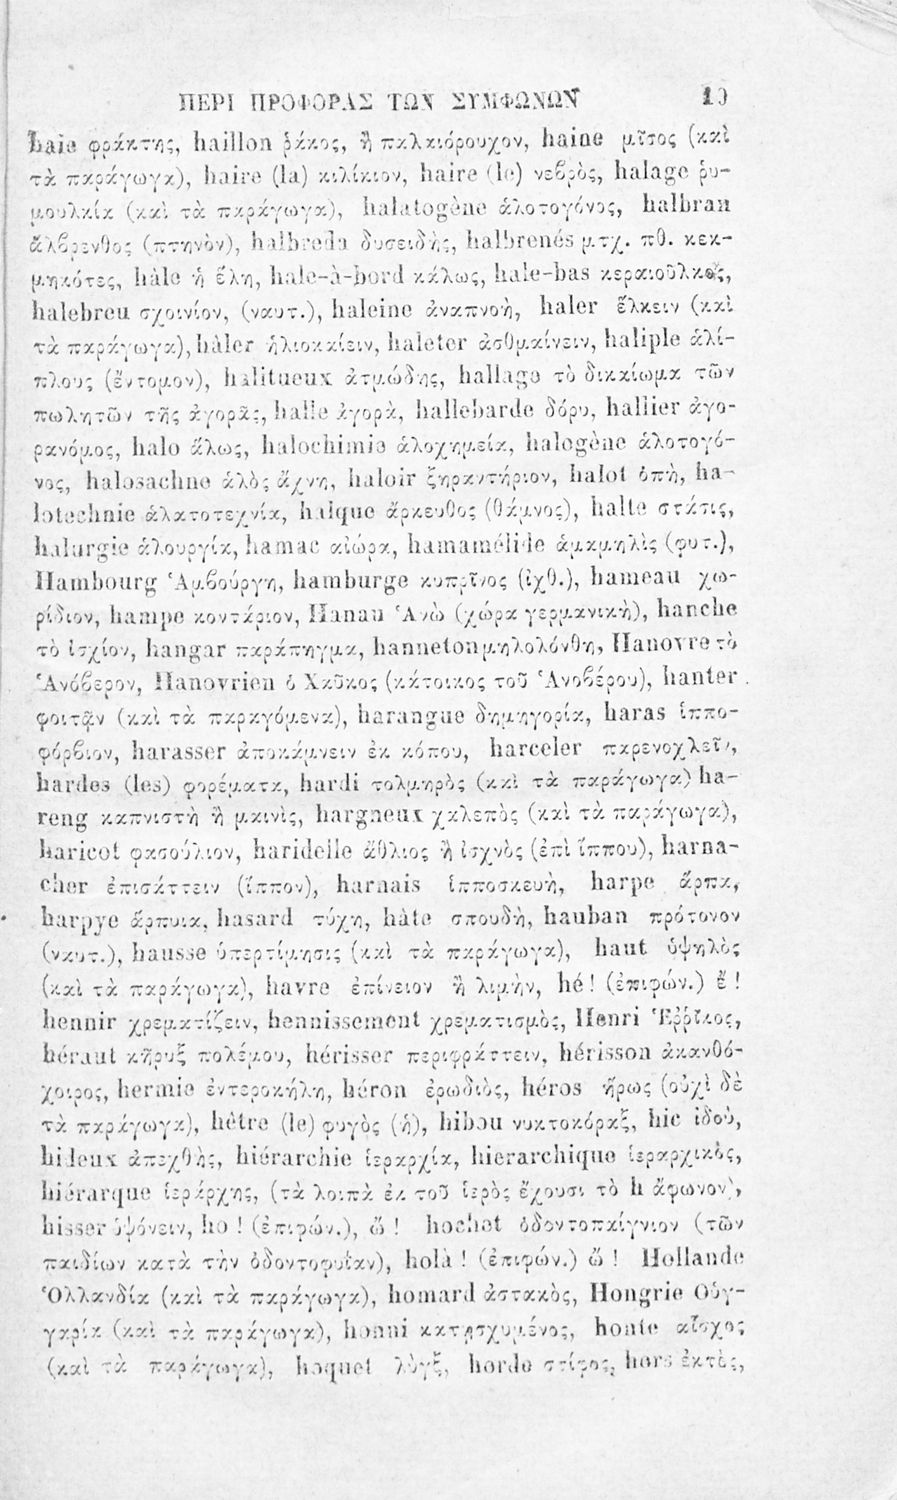 ΠΕΡΙ ΠΡΟΦΟΡΑΣ ΤΩΝ ΣΥΜΦΩΝΩΝ 19
haie φράκτης, haillon ῥάκος, ἢ παλαιόρουχον, haine μῖσος (καὶ
τὰ παράγωγα), haire (la) κιλίκιον, haire (le) νεβρὸς, halage ῥυ-
μουλκία (καὶ τὰ παράγωγα), halatogène ἁλοτογόνος, halbran
ἄλβρενθος (πτηνὸν), halbreda δυσειδὴς, halbrenés μτχ. πθ. κεκ-
μηκότες, hâle ἡ ἕλη, hale-à-bord κάλως, hale-bas κεραιοῦλκος,
halebreu σχοινίον, (ναυτ.), haleine ἀναπνοὴ, haler ἕλκειν (καὶ
τὰ παράγωγα), hâler ἡλιοκαίειν, haleter ἀσθμαίνειν, haliple ἁλί-
πλους (ἔντομον), halitueux ἀτμώδης, hallage τὸ δικαίωμα τῶν
πωλητῶν τῆς ἀγορᾶς, halle ἀγορὰ, hallebarde δόρυ, hallier ἀγο-
ρανόμος, halo ἅλως, halochimie ἁλοχημεία, halogène ἁλοτογό-
νος, halosachne ἁλὸς ἄχνη, haloir ξηραντήριον, halot ὀπὴ, ha-
lotechnie ἁλατοτεχνία, halque ἄρκευθος (θάμνος), halte στάσις,
halurgie ἁλουργία, hamac αἰώρα, hamamélide ἁμαμηλὶς (φυτ.),
Hambourg Ἁμβούργη, hamburge κυπρῖνος (ἰχθ.), hameau χω-
ρίδιον, hampe κοντάριον, Hanau Ἁνὼ (χώρα γερμανικὴ), hanche
τὸ ἰσχίον, hangar παράπηγμα, hanneton μηλολόνθη, Hanovre τὸ
Ἁνόβερον, Hanovrien ὁ Χαῦκος (κάτοικος τοῦ Ἁνοβέρου), hanter
φοιτᾷν (καὶ τὰ παραγόμενα), harangue δημηγορία, haras ἱππο-
φόρβιον, harasser ἀποκάμνειν ἐκ κόπου, harceler παρενοχλεῖν,
hardes (les) φορέματα, hardi τολμηρὸς (καὶ τὰ παράγωγα) ha-
reng καπνιστὴ ἢ μαινὶς, hargneux χαλεπὸς (καὶ τὰ παράγωγα),
haricot φασούλιον, haridelle ἄθλιος ἢ ἰσχνὸς (ἐπὶ ἵππου), harna-
cher ἐπισάττειν (ἵππον), harnais ἱπποσκευὴ, harpe ἅρπα,
harpye ἅρπυια, hasard τύχη, hâte σπουδὴ, hauban πρότονον
(ναυτ.), hausse ὑπερτίμησις (καὶ τὰ παράγωγα), haut ὑψηλὸς
(καὶ τὰ παράγωγα), havre ἐπίνειον ἢ λιμὴν, hé! (ἐπιφών.) ἔ!
hennir χρεματίζειν, hennissement χρεματισμὸς, Henri Ἑῤῥῖκος,
héraut κῆρυξ πολέμου, hérisser περιφράττειν, hérisson ἀκανθό-
χοιρος, hernie ἐντεροκήλη, héron ἐρωδιὸς, héros ἥρως (οὐχὶ δὲ
τὰ παράγωγα), hètre (le) φυγὸς (ἡ), hibou νυκτοκόραξ, hic ἰδοὺ,
hideux ἀπεχθὴς, hiérarchie ἱεραρχία, hierarchique ἱεραρχικὸς,
hiérarque ἱεράρχης, (τὰ λοιπὰ ἐκ τοῦ ἱερὸς ἔχουσι τὸ h ἄφωνον),
hisser ὑψόνειν, ho! (ἐπιφών.), ὤ! hochet ὀδοντοπαίγνιον (τῶν
παιδίων κατὰ τὴν ὀδοντοφυΐαν), holà! (ἐπιφών.) ὤ! Hollande
Ὁλλανδία (καὶ τὰ παράγωγα), homard ἀστακὸς, Hongrie Οὑγ-
γαρία (καὶ τὰ παράγωγα), honni κατῃσχυμένος, honte αἶσχος
(καὶ τὰ παράγωγα), hoquet λὺγξ, horde στίφος, hors ἐκτὸς,